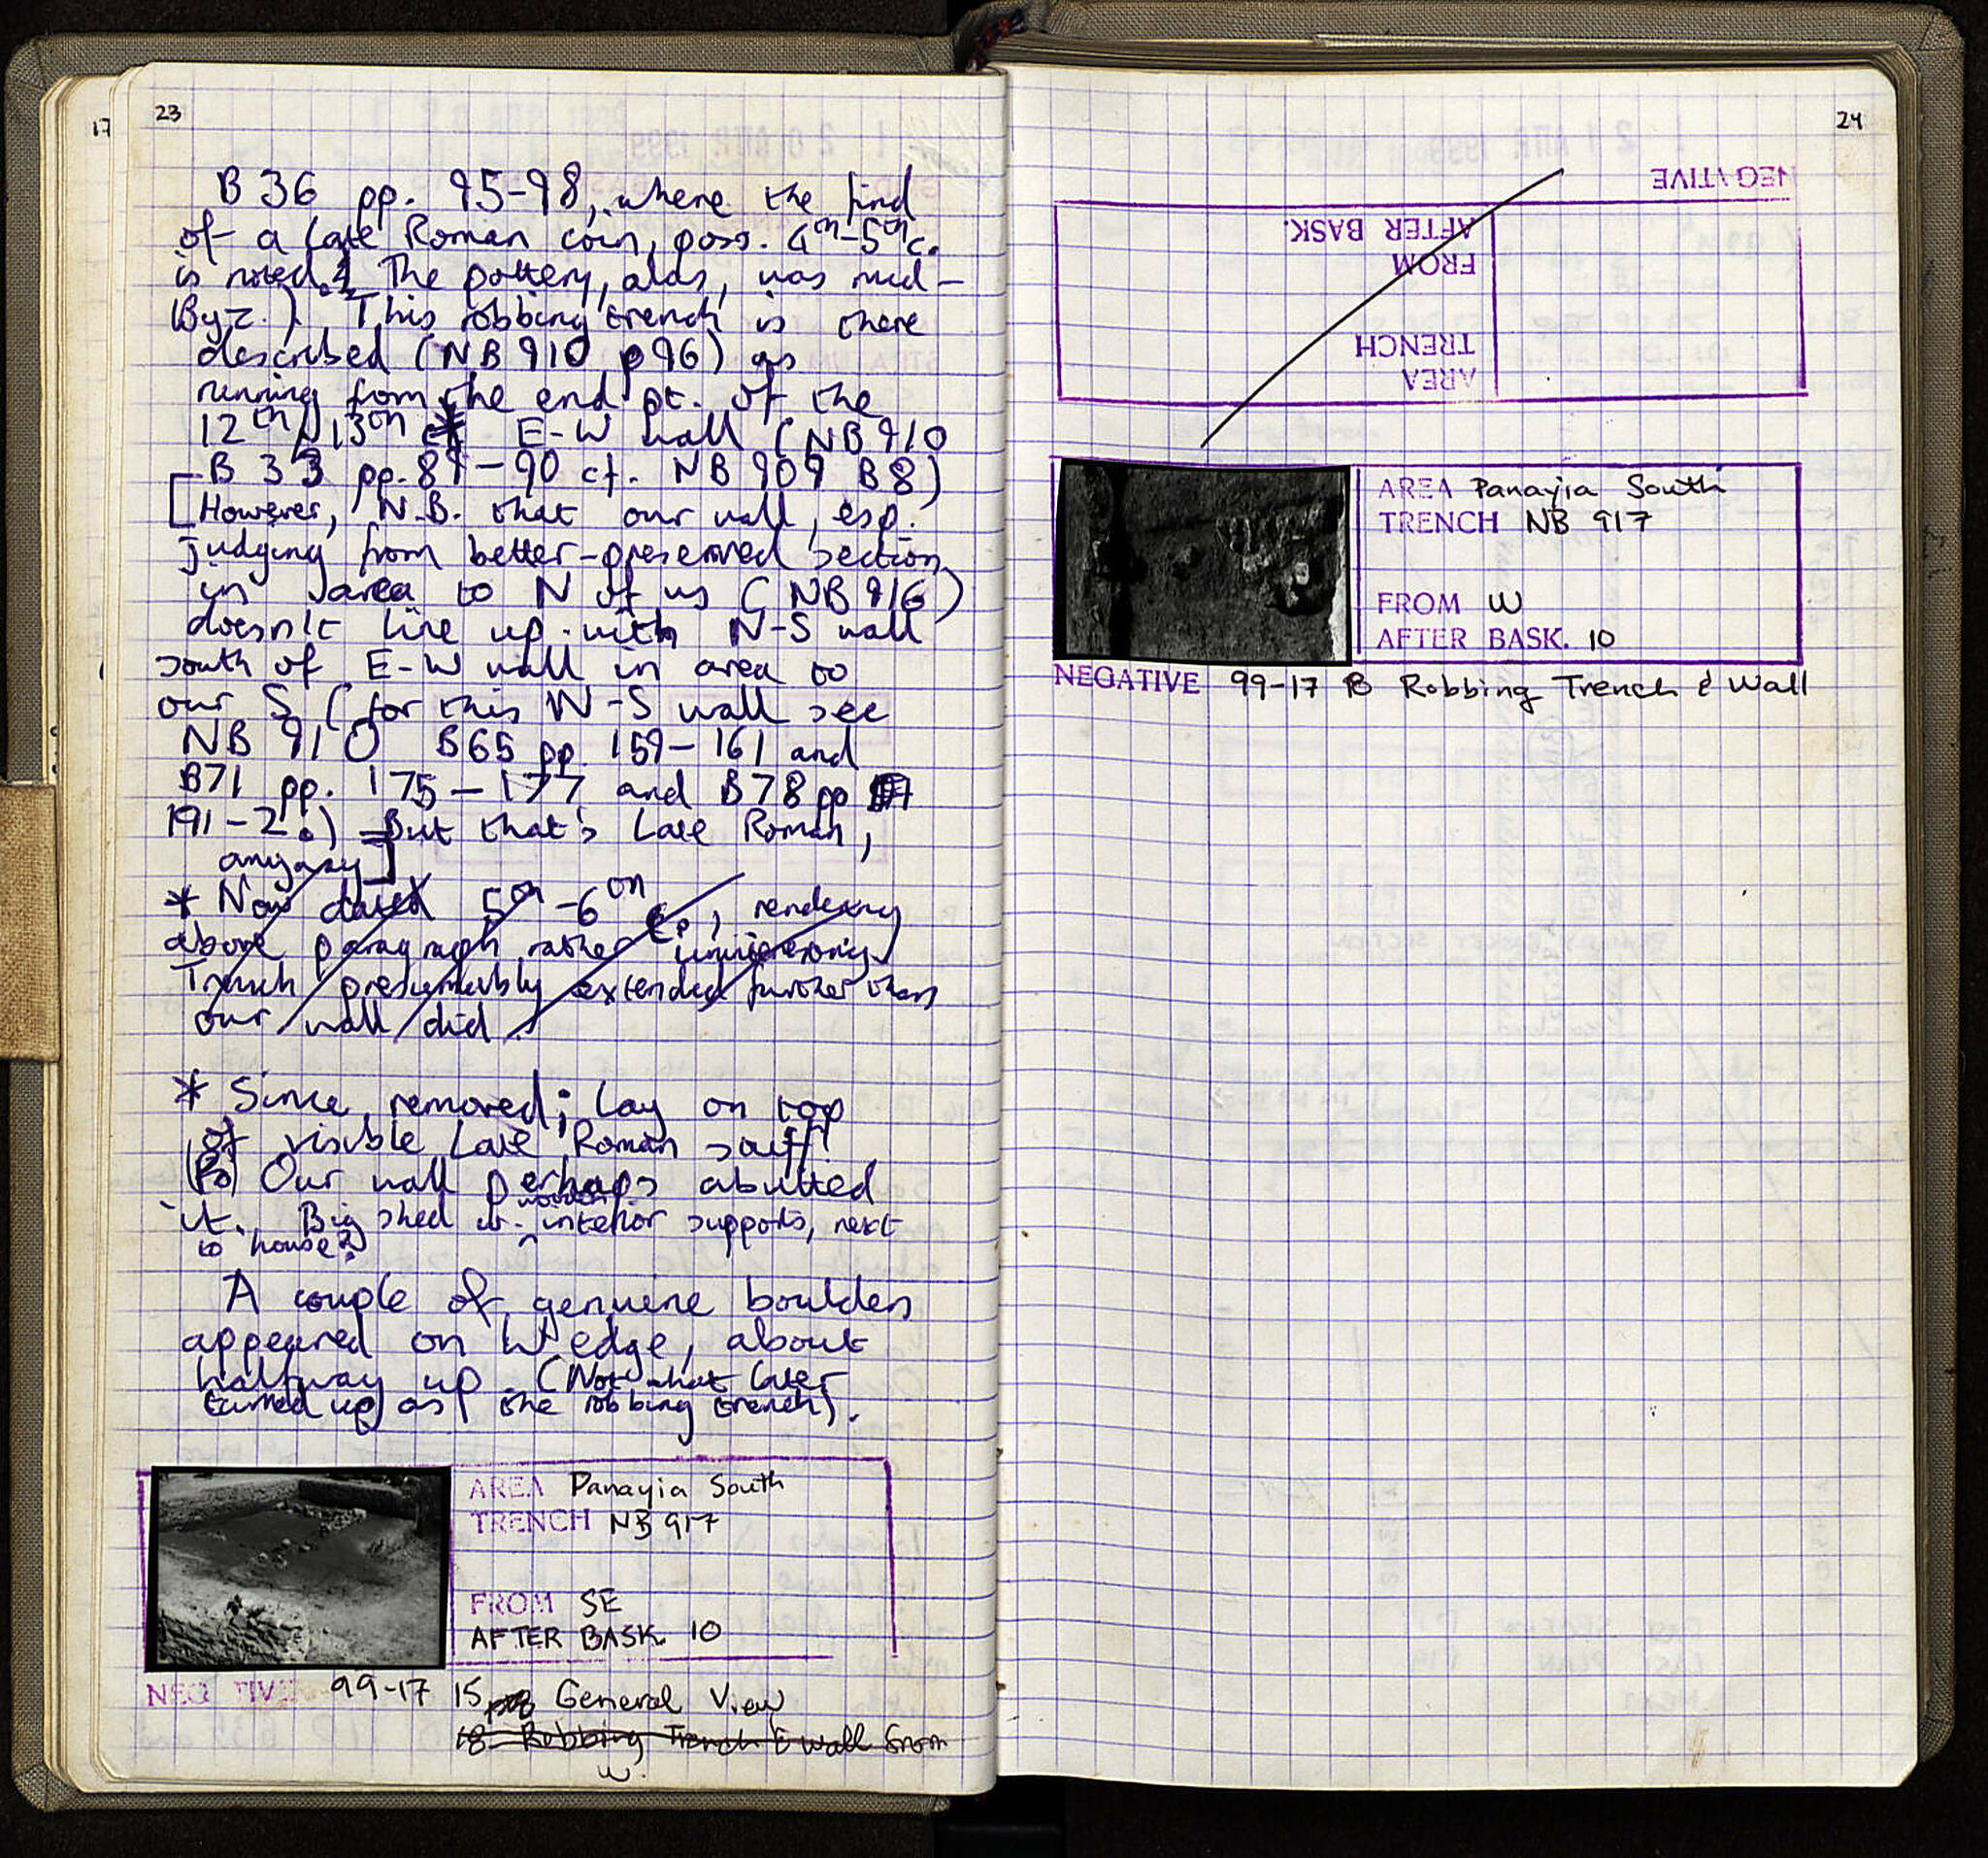 17
23
B 36 pp. 95-98, where the find
of a Late Roman coin, poss. 4th-5th c.
is noted. The pottery, alas, was mid-
Byz.) This robbing trench is there
described (NB 910 p96) as
running from the end pt. of the
12th/13th c * E-W wall (NB 910
B 33 pp. 89-90 cf. NB 909 B8)
[However, N.B. that our wall, esp.
judging from better-preserved section
in area to N of us (NB 916)
doesn't line up with N-S wall
south of E-W wall in area to
our S (for this N-S wall see
NB 910 B65 pp. 159-161 and
B71 pp. 175-177 and B78 pp
191-2.) But that's Late Roman,
anyway]
* Now dated 5th-6th c., rendering
above paragraph rather
Trench presumably extended further than
our wall did.
* Since removed; lay on top
of visible Late Roman stuff!
Our wall perhaps abutted
it. Big shed w. wooden interior supports, next
to house?
A couple of genuine boulders
appeared on W edge, about
halfway up. (Not what later
turned up as the robbing trench).
AREA Panayia South
TRENCH NB 917
FROM SE
AFTER BASK. 10
NEGATIVE 99-17 15 General View
18 Robbing Trench & Wall from
W.
24
NEGATIVE
AFTER BASK.
FROM
TRENCH
AREA
AREA Panayia South
TRENCH NB 917
FROM W
AFTER BASK. 10
NEGATIVE 99-17 18 Robbing Trench & Wall